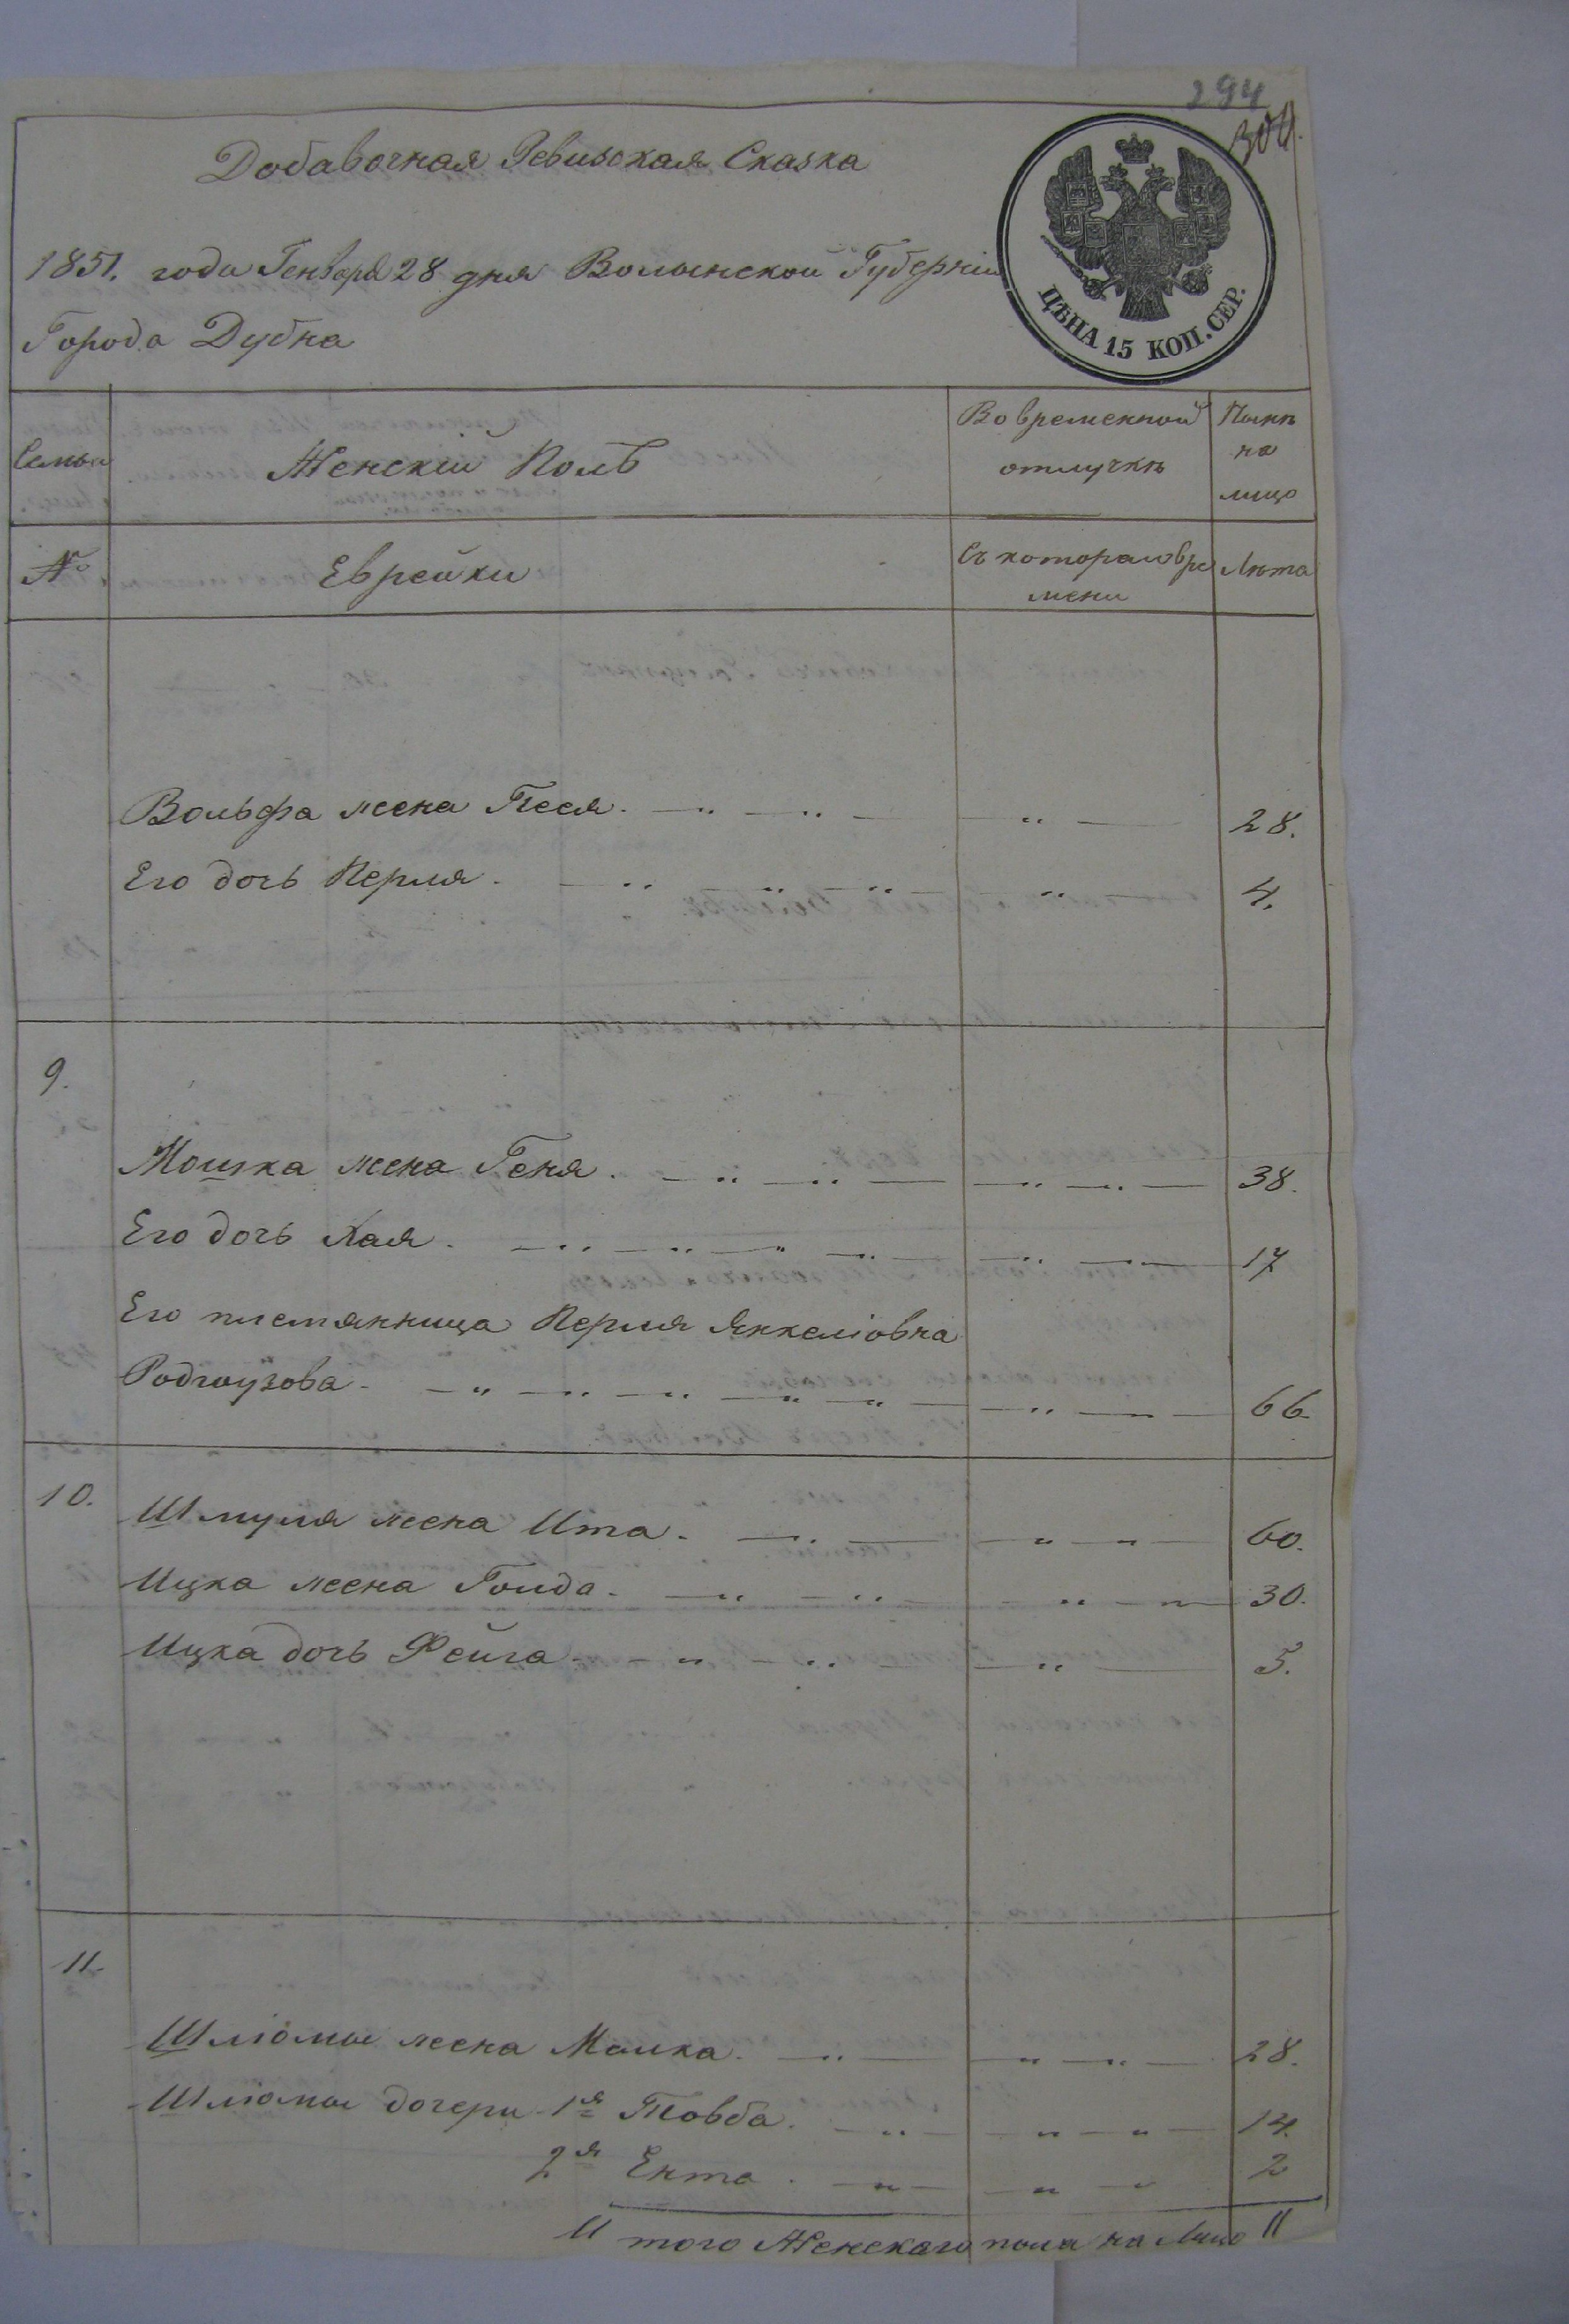 294
304.
Добавочная Ревизская Сказка
1851. года Генваря 28 дня Волынской Губерніи
Города Дубна
ЦѢНА 15 КОП. СЕР.
Семьи
Женскій Полъ
Во временной отлучкѣ
Нынѣ на лицо
№
Еврейки
Съ котораго времени
Лѣта
Вольфа жена Песя. 28.
Его дочь Перля. 4.
9.
Мошка жена Геня. 38.
Его дочь Хая. 17
Его племянница Перля Янкеліовна
66.
10. Шмуля жена Ита. 60.
Ицка жена Голда. 30.
Ицка дочь Фейга 5.
11.
Шліомы жена Малка. 28.
Шліомы дочери 1я Товба. 14.
2я Ента. 2
Итого Женскаго пола на Лицо 11